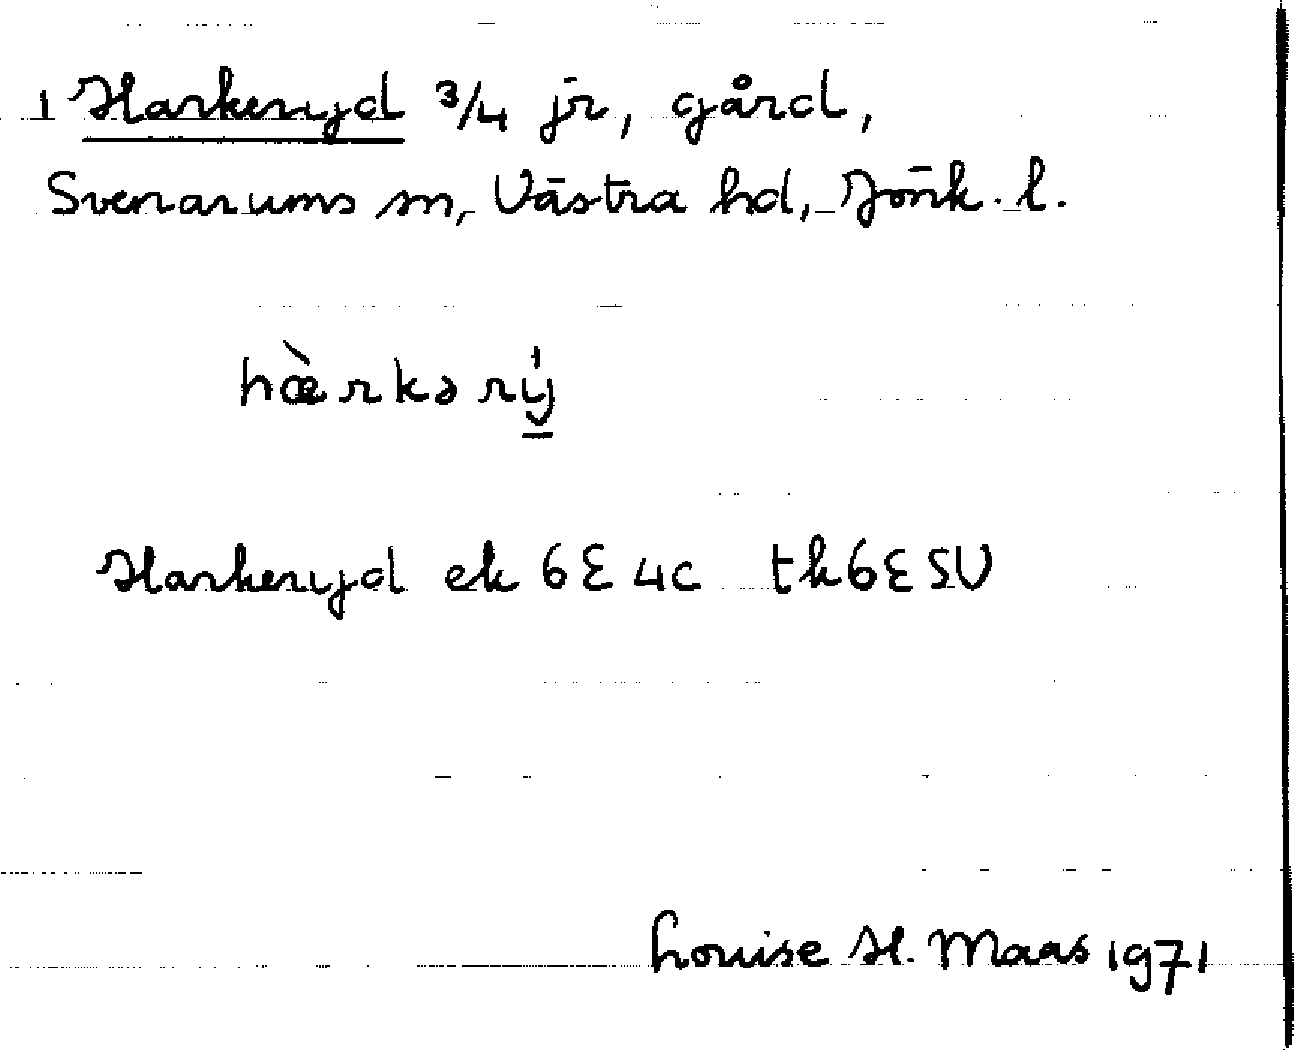 1 Harkeryd 3/4 jr, gård,
Svenarums sn, Västra hd, Jönk. l.
hæ̀rkərý
Harkeryd ek 6E 4c tk 6E SV
Louise H. Maas 1971